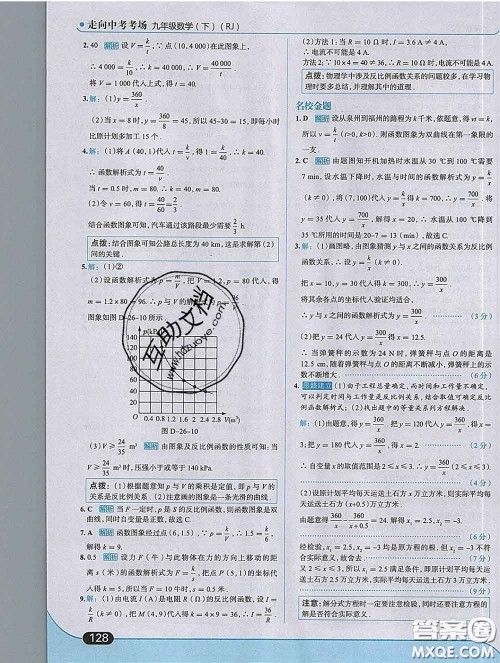 走向中考考场 九年级数学(下)(RJ)
2. 40 解析 设 V=k/t,∵点(10,4 000)在此图象上,
∴4 000=k/10,∴k=40 000,∴V=40 000/t.
将 V=1 000 代入上式,得 t=40.
3. 解:(1)y=360/x.
(2)当 x=8 时,y=45,所以 45-30=15,即每小时
比原计划多加工 15 个.
4. 解:(1)将 A(40,1)代入 t=k/v,得 1=k/40,∴k=40.
∴函数解析式为 t=40/v,
当 t=0.5 时,m=80,∴k=40,m=80.
(2)令 v=60,得 t=40/60=2/3,
结合函数图象可知,汽车通过该路段最少需要 2/3 h.
点拨:结合图象可知公路总长度为 40 km,这是求解第(2)
问的关键.
5. 解:(1)②
(2)设函数解析式为 p=m/V,
m=1.2×80=96,
图象如图 D-26-10 所示.
p(kPa)
140
120
100
80
60
40
20
0 0.4 0.8 1.2 1.6 2 2.4 2.8 V(m³)
图 D-26-10
(3)V≥24/35 m³ 解析 由图象及反比例函数的性质可知:当
V≥24/35 m³ 时,压强小于或等于 140 kPa.
点拨:(1)根据题意知 p 与 V 的乘积是定值,即 p 与 V 的
关系是反比例关系.(2)注意画的图象是一条光滑的曲线.
6. C 解析 当 F 一定时,p 是 S 的反比例函数,则函数图象是双
曲线,同时自变量是正数.故选 C.
7. A 解析 函数图象经过点(6,1.5),∴设 I=k/R,∴1.5=k/6,
解得 k=9.
8. 0.5 解析 设力 F(牛)与此物体在力的方向上移动的距
离 s(米)的函数解析式为 F=k/s,
9. 解:(1)由电流 I(A)是电阻 R(Ω)的反比例函数,设 I=
k/R(k≠0),根据题意,得 k=4×9=36,∴I=36/R.
128
(2)方法 1:当 R=10 Ω 时,I=3.6≠4,∴电流不可能是 4 A.
方法 2:10×4=40≠36,∴当 R=10 Ω 时,电流不可能是 4 A.
点拨:物理学中涉及反比例函数关系的问题较多,在学习物
理时要多总结,并理解其中的道理.
名校金题
1. D 解析 设从泉州到福州的路程为 k 千米,依题意,得 vt=k,
所以 v=k/t(t>0,k>0).则函数图象为双曲线在第一象限的
一支.
2. C 解析 由题图知开机加热时水温从 30 ℃到 100 ℃需要
7 min,设水温下降时,水温与时间的函数关系式为 y=k/x
将 y=
35 代入 y=700/x,得 x=20,∴水温从 100 ℃降到
35 ℃所用的时间是 20-7=13(min),故选 C.
3. 解:(1)画图略,由图象猜测 y 与 x 之间的函数关系为反比例
函数,∴设 y=k/x(k≠0).把 x=10,y=30 代入,得 k=300.
将其余各点的坐标代入验证均适合.
∴y 与 x 的函数关系式为 y=300/x.(3 分)
(2)把 y=24 代入 y=300/x,得 x=12.5.
∴当弹簧秤的示数为 24 N 时,弹簧秤与点 O 的距离是
12.5 cm.随着弹簧秤与点 O 的距离不断减小,弹簧秤上的示
数不断增大.(6 分)
4. 思路建立 (1)由于工程总量确定,而时间和工作量不确定,可
以判定时间与工作量是反比例关系,依据自变量取值确定反
比例函数解析式;(2)找出题中的等量关系列方程求解.
解:(1)由题意,得 y=360/x,(2 分)
把 y=120 代入 y=360/x,得 x=3,把 y=180 代入 y=360/x,得 x=2,
∴自变量 x 的取值范围是 2≤x≤3.∴y=360/x(2≤x≤3).
(4 分)
(2)设原计划平均每天运送土石方 x 万立方米,则实际平均
每天运送土石方(x+0.5)万立方米,
由题意得 (6 分)
解得 x=2.5 或 x=-3.(7 分)
经检验,x₁=2.5,x₂=-3 均为原方程的根,但 x=-3 不符合
实际意义,故舍去.(8 分)
又∵2≤x≤3,∴x=2.5 满足条件,即原计划平均每天运送土
石方 2.5 万立方米,实际平均每天运送土石方 3 万立方米.
(9 分)
注意:解分式方程时一定要注意检验,同时还要注意方程的解
是否符合实际意义.
互助文档
www.hdzuoye.com
答案圈
MXQE.COM